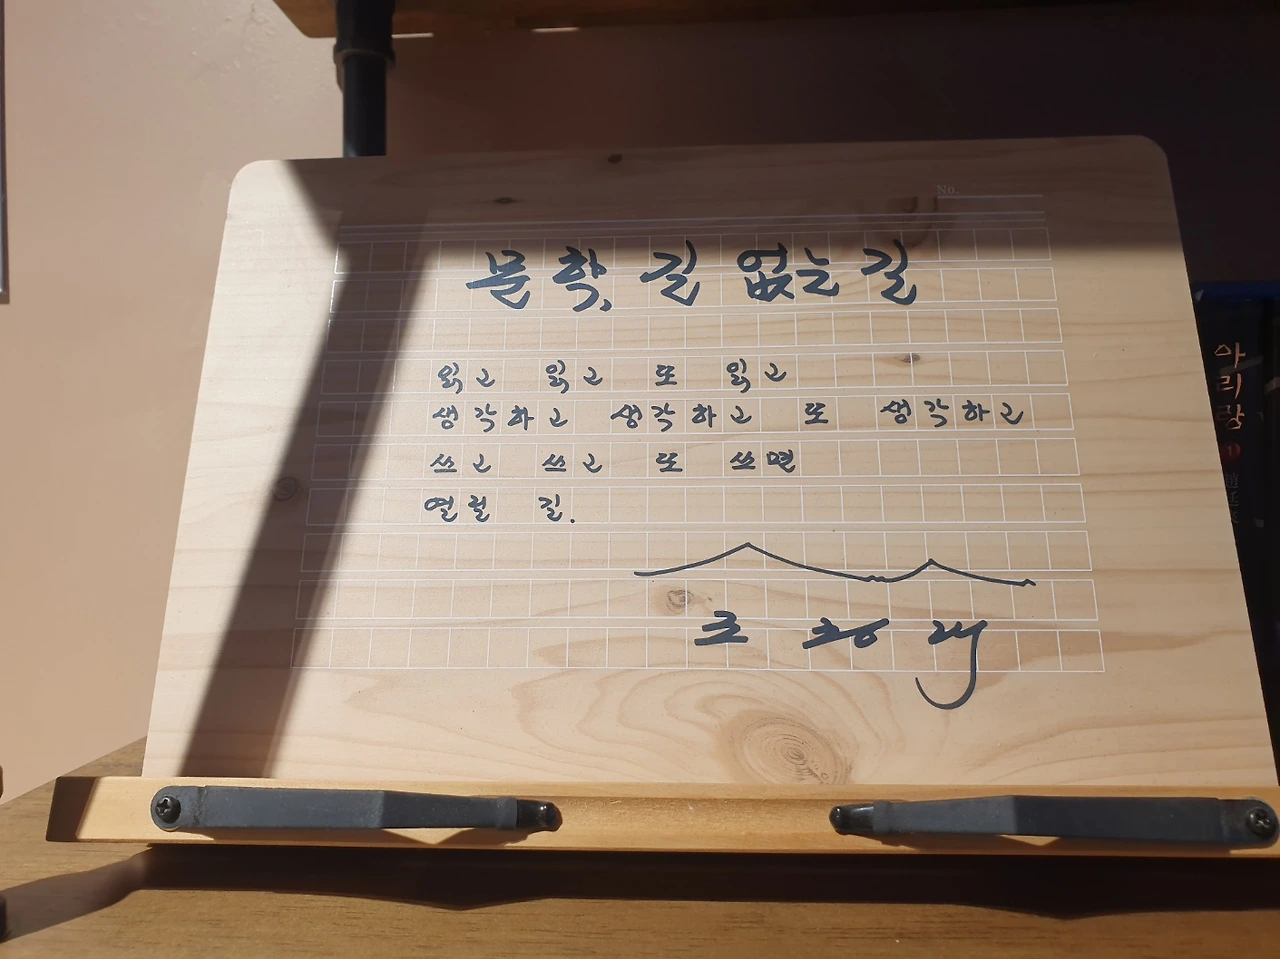 No.
문학, 길 없는 길
읽고 읽고 또 읽고
생각하고 생각하고 또 생각하고
쓰고 쓰고 또 쓰면
열릴 길.
조정래
아리랑
1